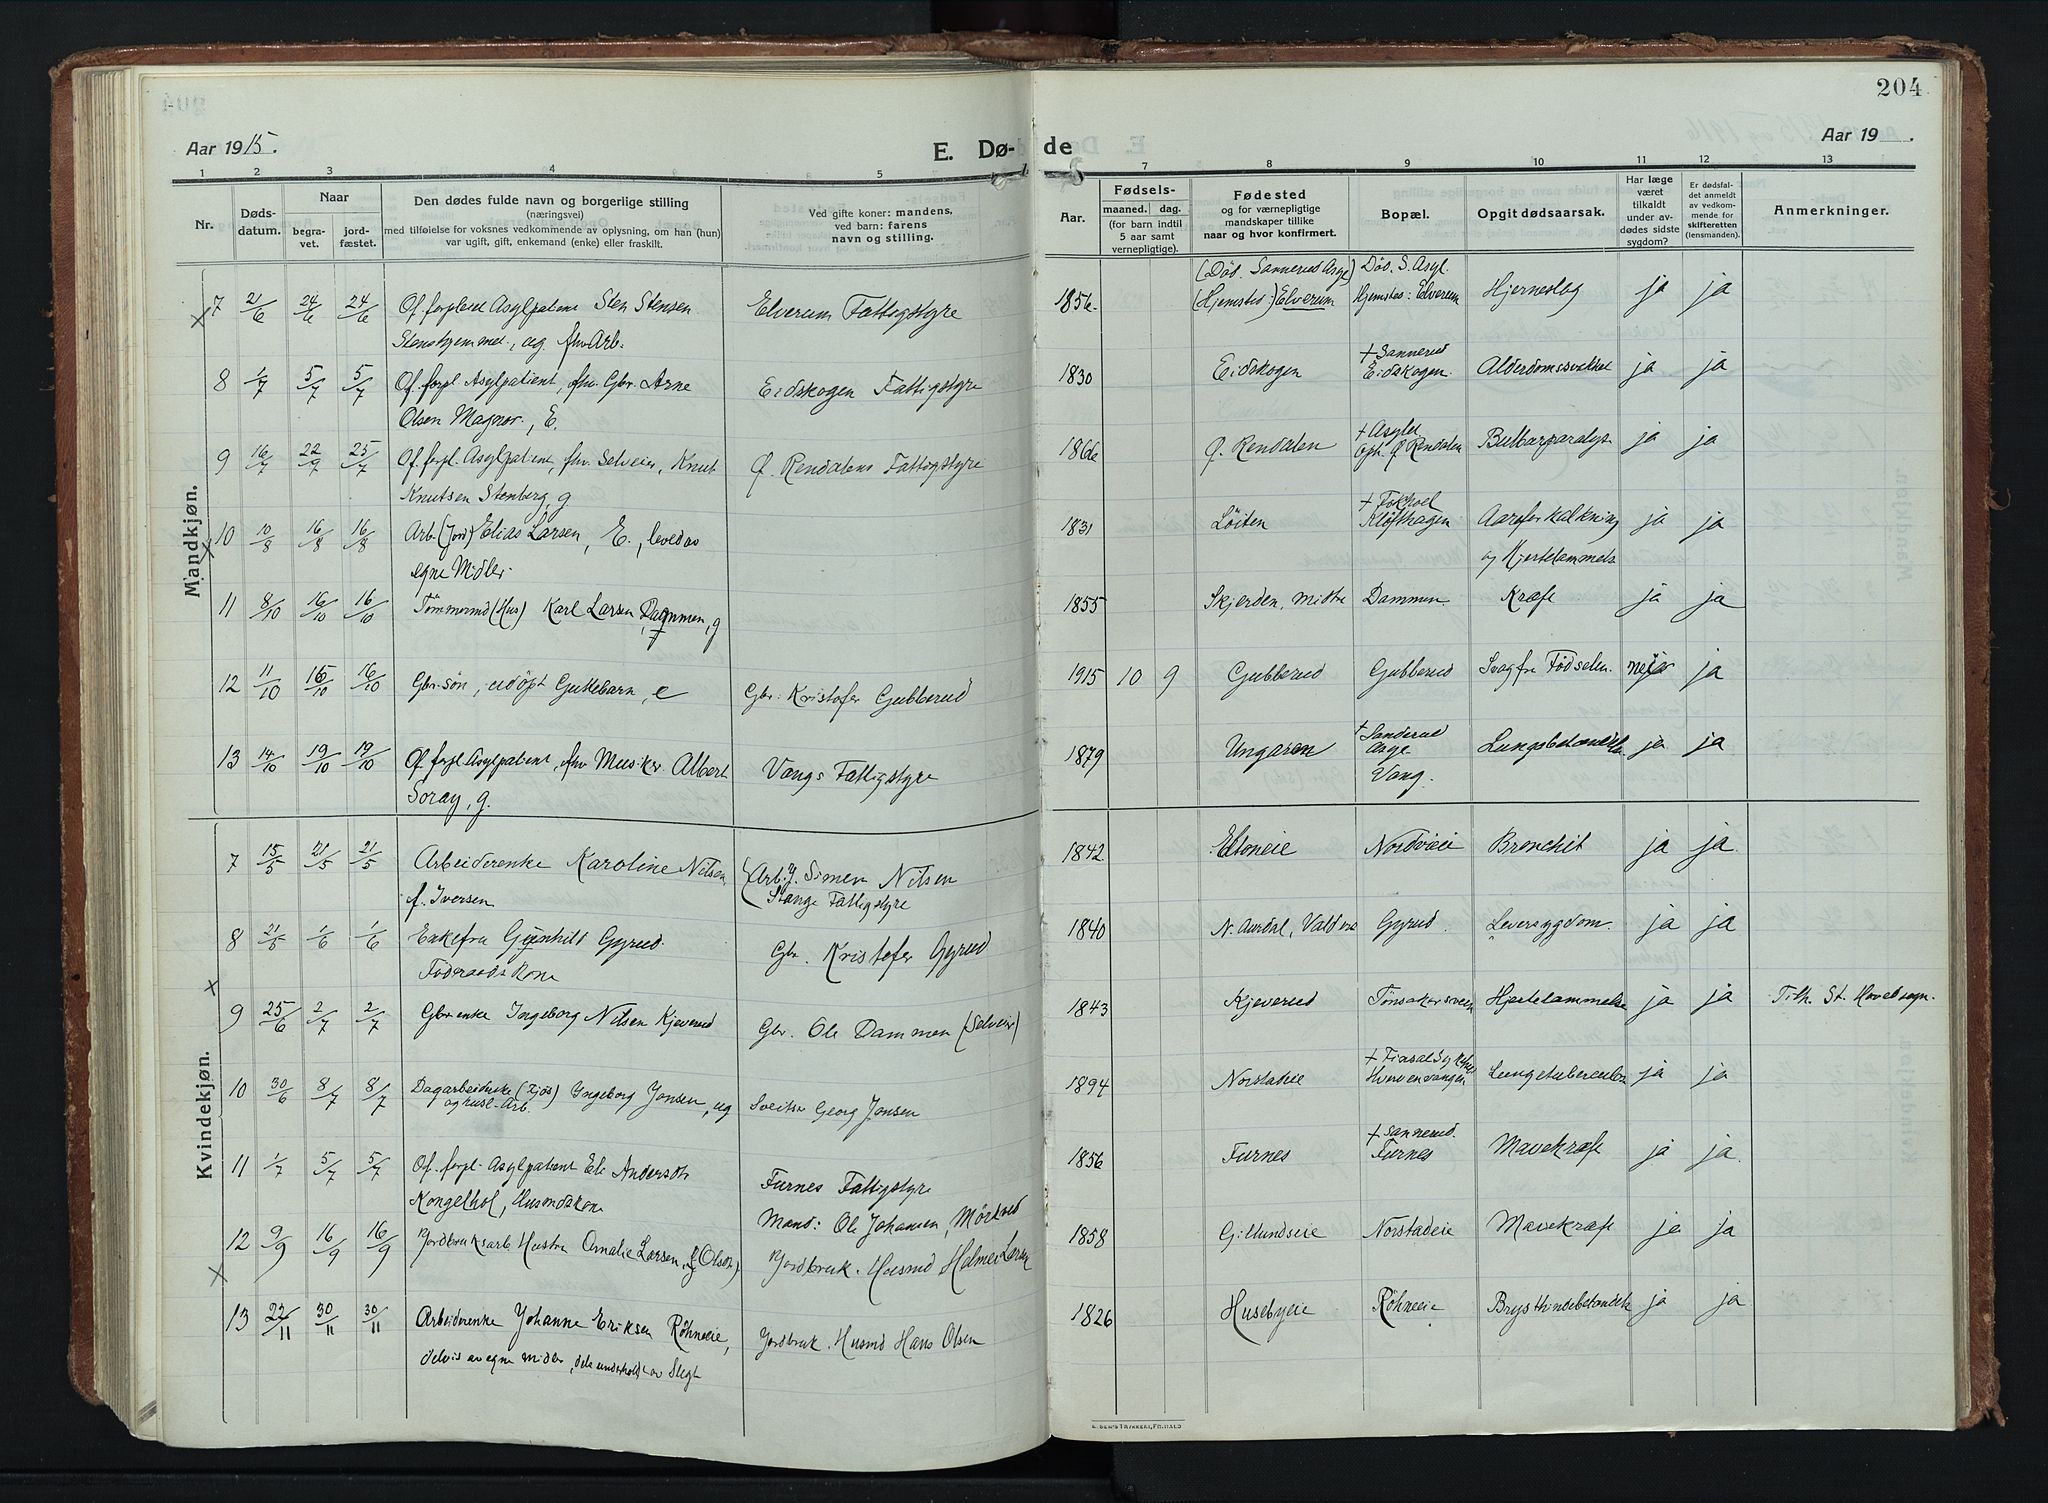 204
Aar 1915.
E. Dø-de
Aar 19
1 2 3 4 5 7 8 9 10 11 12 13
Nr.
Døds-
datum.
Naar
begra-
vet.
jord-
fæstet.
Den dødes fulde navn og borgerlige stilling
(næringsvei)
med tilføielse for voksnes vedkommende av oplysning, om han (hun)
var ugift, gift, enkemand (enke) eller fraskilt.
Ved gifte koner: mandens,
ved barn: farens
navn og stilling.
Aar.
Fødsels-
maaned. dag.
(for barn indtil
5 aar samt
vernepligtige).
Fødested
og for værnepligtige
mandskaper tillike
naar og hvor konfirmert.
Bopæl.
Opgit dødsaarsak.
Har læge
været
tilkaldt
under av-
dødes sidste
sygdom?
Er dødsfal-
det anmeldt
av vedkom-
mende for
skifteretten
(lensmanden).
Anmerkninger.
Mandkjøn.
7 21/6 24/6 24/6 Of. forpleiet Asylpatient Sten Stensen
Stenshjemmet, ug. fhv Arb.
Elverum Fattigstyre
1856. (Død. Sannerud Asyl)
(Hjemsted:) Elverum
Død. S. Asyl.
Hjemsted: Elverum
Hjerneslag ja ja
8 1/7 5/7 5/7 Of. forpl Asylpatient, fhv. Gbr. Arne
Olsen Magnor., E.
Eidskogen Fattigstyre
1830 Eidskogen + Sannerud
Eidskogen. Alderdomssvækket ja ja
9 16/7 22/7 25/7 Of. forpl. Asylpatient, fhv. Selveier, Knut
Knutsen Stenberg, g
Ø. Rendalens Fattigstyre
1866 Ø. Rendalen + Asylet
oph. Ø Rendalen Bulbærparalyse ja ja
10 10/8 16/8 16/8 Arb. (Jord) Elias Larsen, E., leved av
egne Midler.
1831 Løiten + Fokhoel
Kløfthagen Aareforkalkning
og Hjertelammelse ja ja
11 8/10 16/10 16/10 Tømmermd (Hus) Karl Larsen Dammen, g
1855 Skjerden, midtre Dammen Kræft ja ja
12 11/10 16/10 16/10 Gbr. søn, udøpt Guttebarn, e
Gbr. Kristofer Gubberud
1915 10 9 Gubberud Gubberud Svag fra Fødselen. nei ja
13 14/10 19/10 19/10 Of. forpl Asylpatient, fhv Musiker Albert
Soray, g.
Vangs Fattigstyre
1879 Ungaren + Sanderud
Asyl
Vang. Lungebetændelse ja ja
Kvindekjøn.
7 15/5 21/5 21/5 Arbeiderenke Karoline Nilsen,
f. Iversen
Arb. g. Simen Nilsen
Stange Fattigstyre
1842 Eltoneie Nordvieie Bronchit ja ja
8 21/5 1/6 1/6 Enkefru Gunhild Gyrud
Føderaadskone
Gbr. Kristofer Gyrud
1840 N. Aurdal, Valdres Gyrud. Leversygdom ja ja
9 25/6 2/7 2/7 Gbr enke Ingeborg Nilsen Kjeverud
Gbr. Ole Dammen (Selveier)
1843 Kjeverud Tønsakersveen Hjertelammelse ja ja Tilh. St. Hovedsogn.
10 30/6 8/7 8/7 Dagarbeiderske (Fjøs) Ingeborg Jonsen, ug
og husl. Arb.
Sveitser Georg Jonsen
1894 Norstadeie + Finsal Sykehus
Lungetuberculose ja ja
11 1/7 5/7 5/7 Of. forpl. Asylpatient Eli Andersdtr
Kongelhol, Husmdskone
Furnes Fattigstyre
Mand: Ole Johansen, Mørkved
1856 Furnes + Sannerud.
Furnes Mavekræft ja ja.
12 9/9 16/9 16/9 Jordbruksarb. Hustru Amalie Larsen, f. Olsdtr.
Jordbruk. Husmd Helmer Larsen
1858 Gillundseie Norstadeie Mavekræft ja ja
13 22/11 30/11 30/11 Arbeiderenke Johanne Eriksen Røhneeie,
delvis av egne midler, dels underholdt av Slegt
Jordbruk. Husmd Hans Olsen
1826 Husebyeie Røhneeie Brysthindebetændelse ja ja